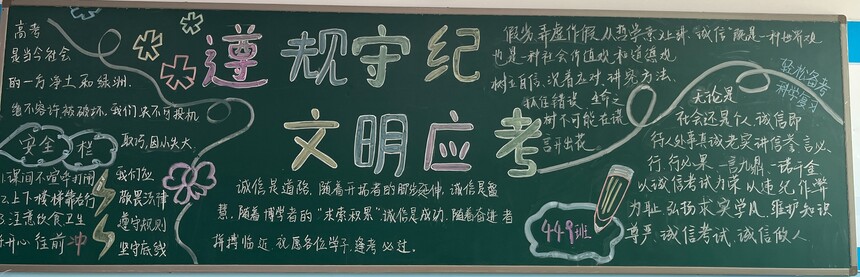 高考
是当今社会
的一方净土和绿洲.
绝不容许被破坏,我们决不可投机
取巧,因小失大.
遵规守纪
文明应考
安全栏
1.课间不喧哗打闹
2.上下楼梯靠右行
3.注意饮食卫生
开心往前冲
我们应
敬畏法律
遵守规则
坚守底线
诚信是道路,随着开拓者的脚步延伸,诚信是智
慧,随着博学者的"求索积累"诚信是成功,随着奋进者
拼搏临近.祝愿各位学子,逢考必过.
弄虚作假 从
诚信"既是一种世界观
也是一种社会价值观和道德观
树立自信,沉着应对,讲究方法.
抓住错误 生命之
树不可能在谎
言开出花。
449班
轻松备考
科学复习
无论是
社会还是个人,诚信即
行人处事真诚老实讲信誉言必
行,行必果,一言九鼎,一诺千金
以诚信考试为荣,以违纪作弊
为耻,弘扬求实学风,维护知识
尊严,诚信考试,诚信做人